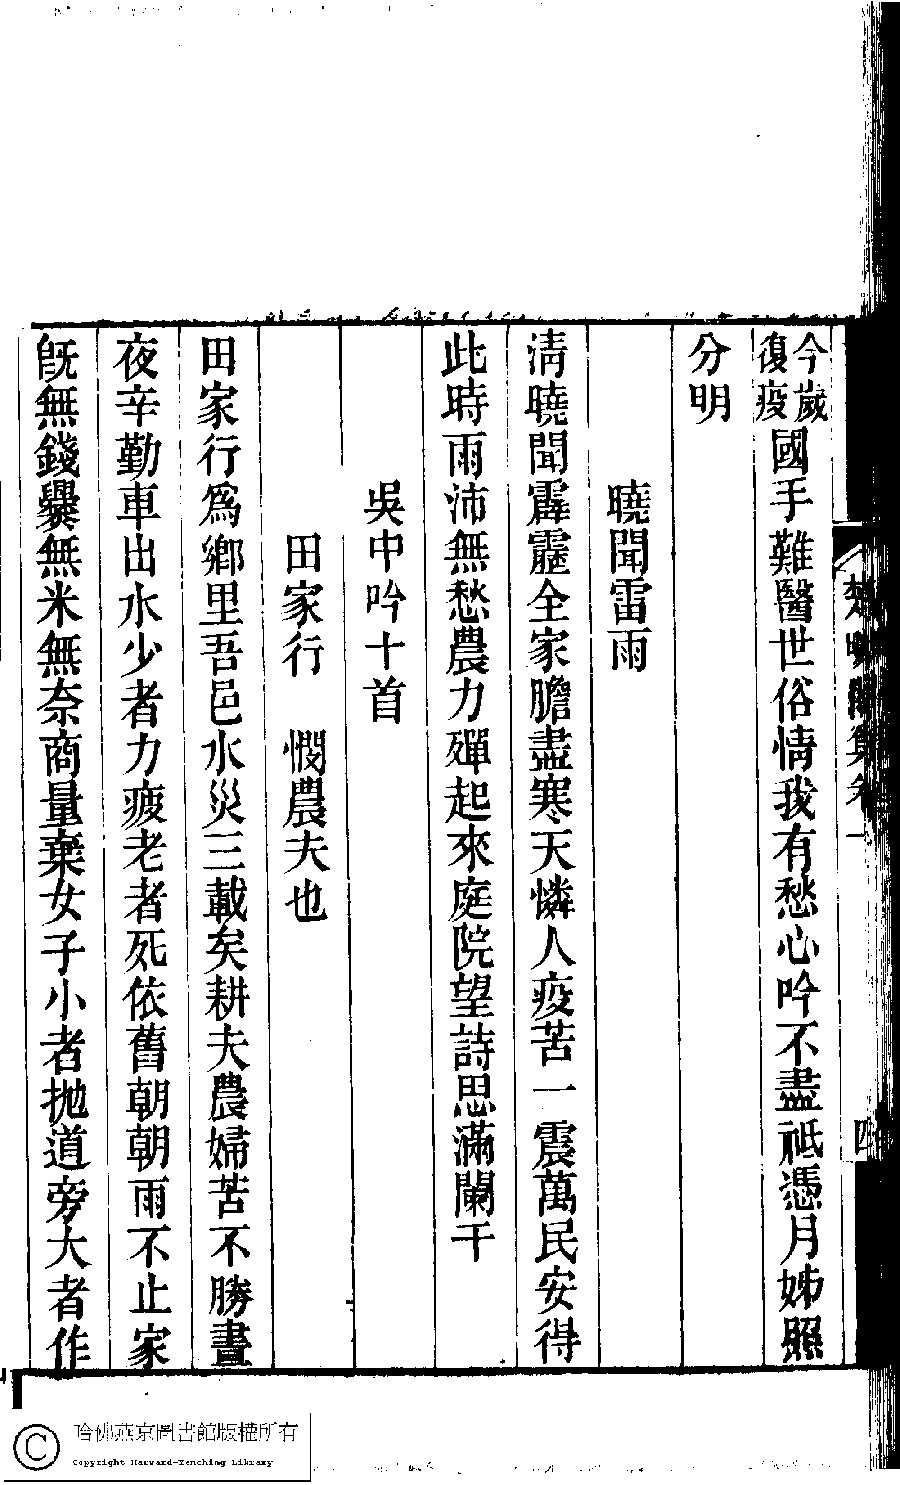 今歲復疫國手難醫世俗情我有愁心吟不盡祗憑月姊照
分明
曉聞雷雨
淸曉聞霹靂全家膽盡寒天憐人疫苦一震萬民安得
此時雨沛無愁農力殫起來庭院望詩思滿闌干
吳中吟十首
田家行 憫農夫也
田家行爲鄉里吾邑水災三載矣耕夫農婦苦不勝晝
夜辛勤車出水少者力疲老者死依舊朝朝雨不止家
旣無錢爨無米無奈商量棄女子小者拋道旁大者作
四
哈佛燕京圖書館版權所有
Copyright Harvard-Yenching Library